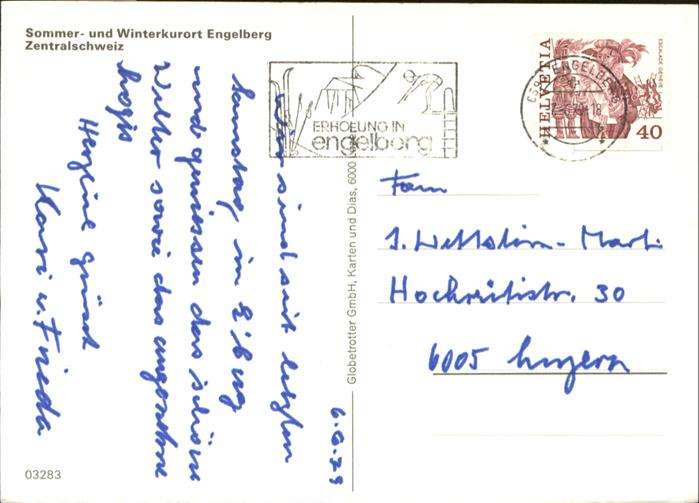 Sommer- und Winterkurort Engelberg
Zentralschweiz
6.6.79
Wir sind seit letzten
Samstag in E'berg
und geniessen das schöne
Wetter sowie das angenehme
logis
Herzine Grüsse
Kari u. Frieda
03283
Globetrotter GmbH, Karten und Dias, 6000
ERHOLUNG IN
engelberg
ENGELBERG
HELVETIA
ESCALADE GENÈVE
40
Fam
J. Wettstein-Marti
Hochrütistr. 30
6005 Luzern